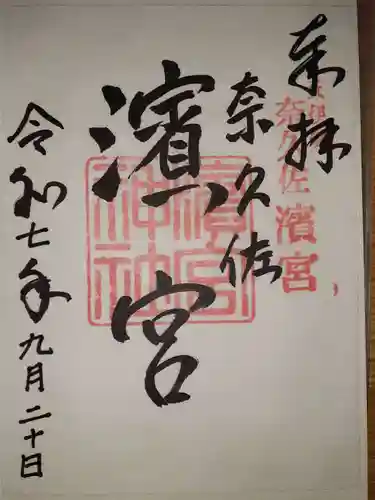 奉拝
奈久佐
濱宮
奈久佐濱宮
濱宮神社
令和七年九月二十日